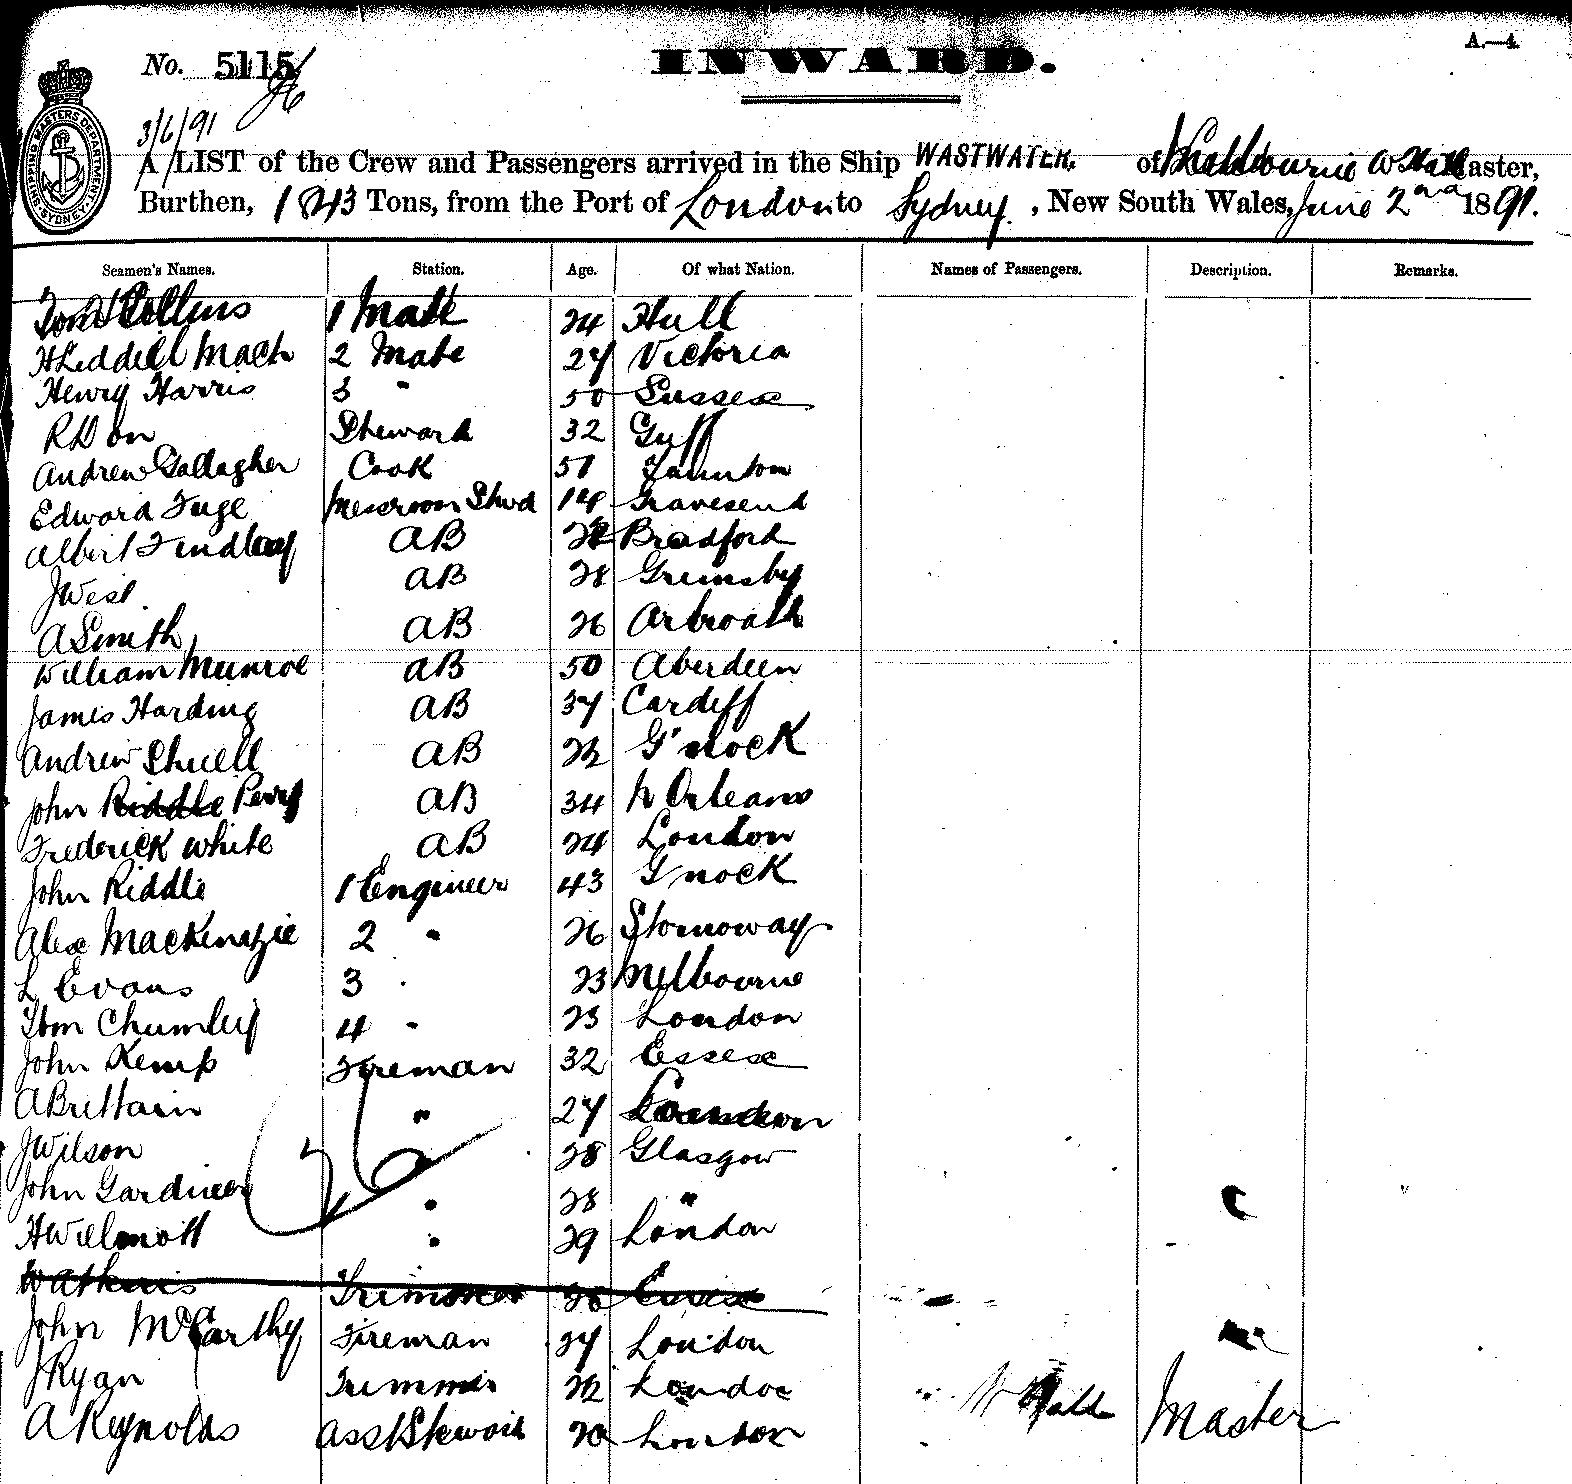 No. 5115
INWARD.
A.—4.
SHIPPING MASTERS DEPARTMENT SYDNEY
3/6/91
A LIST of the Crew and Passengers arrived in the Ship WASTWATER. of Master,
Burthen, 1843 Tons, from the Port of London to Sydney, New South Wales, June 2nd 1891.
Seamen's Names. Station. Age. Of what Nation. Names of Passengers. Description. Remarks.
Collins 1 Mate 24 Hull
H Liddell Mach 2 Mate 27 Victoria
Henry Harris 3 " 50 Sussex
R Steward 32
Andrew Gallagher Cook 51 Taunton
Edward Fuge Messroom Stwd 14 Gravesend
Albert Findlay AB Bradford
J West AB 28 Grimsby
A Smith AB 26 Arbroath
William Munroe AB 50 Aberdeen
James Harding AB 37 Cardiff
Andrew AB 22 G'nock
John Riddle Perry AB 34 N Orleans
Frederick White AB 24 London
John Riddle 1 Engineer 43 G'nock
Alex Mackenzie 2 " 26 Stornoway
L Evans 3 " 23 Melbourne
Tom Chumley 4 " 23 London
John Kemp Fireman 32 Essex
A Brittain " 27 London
J Wilson " 28 Glasgow
John Gardiner " 28 "
H Willmott " 29 London
Watkins Trimmer 26 Essex
John McCarthy Fireman 27 London
J Ryan Trimmer 22 London
A Reynolds Asst Steward 20 London
Master